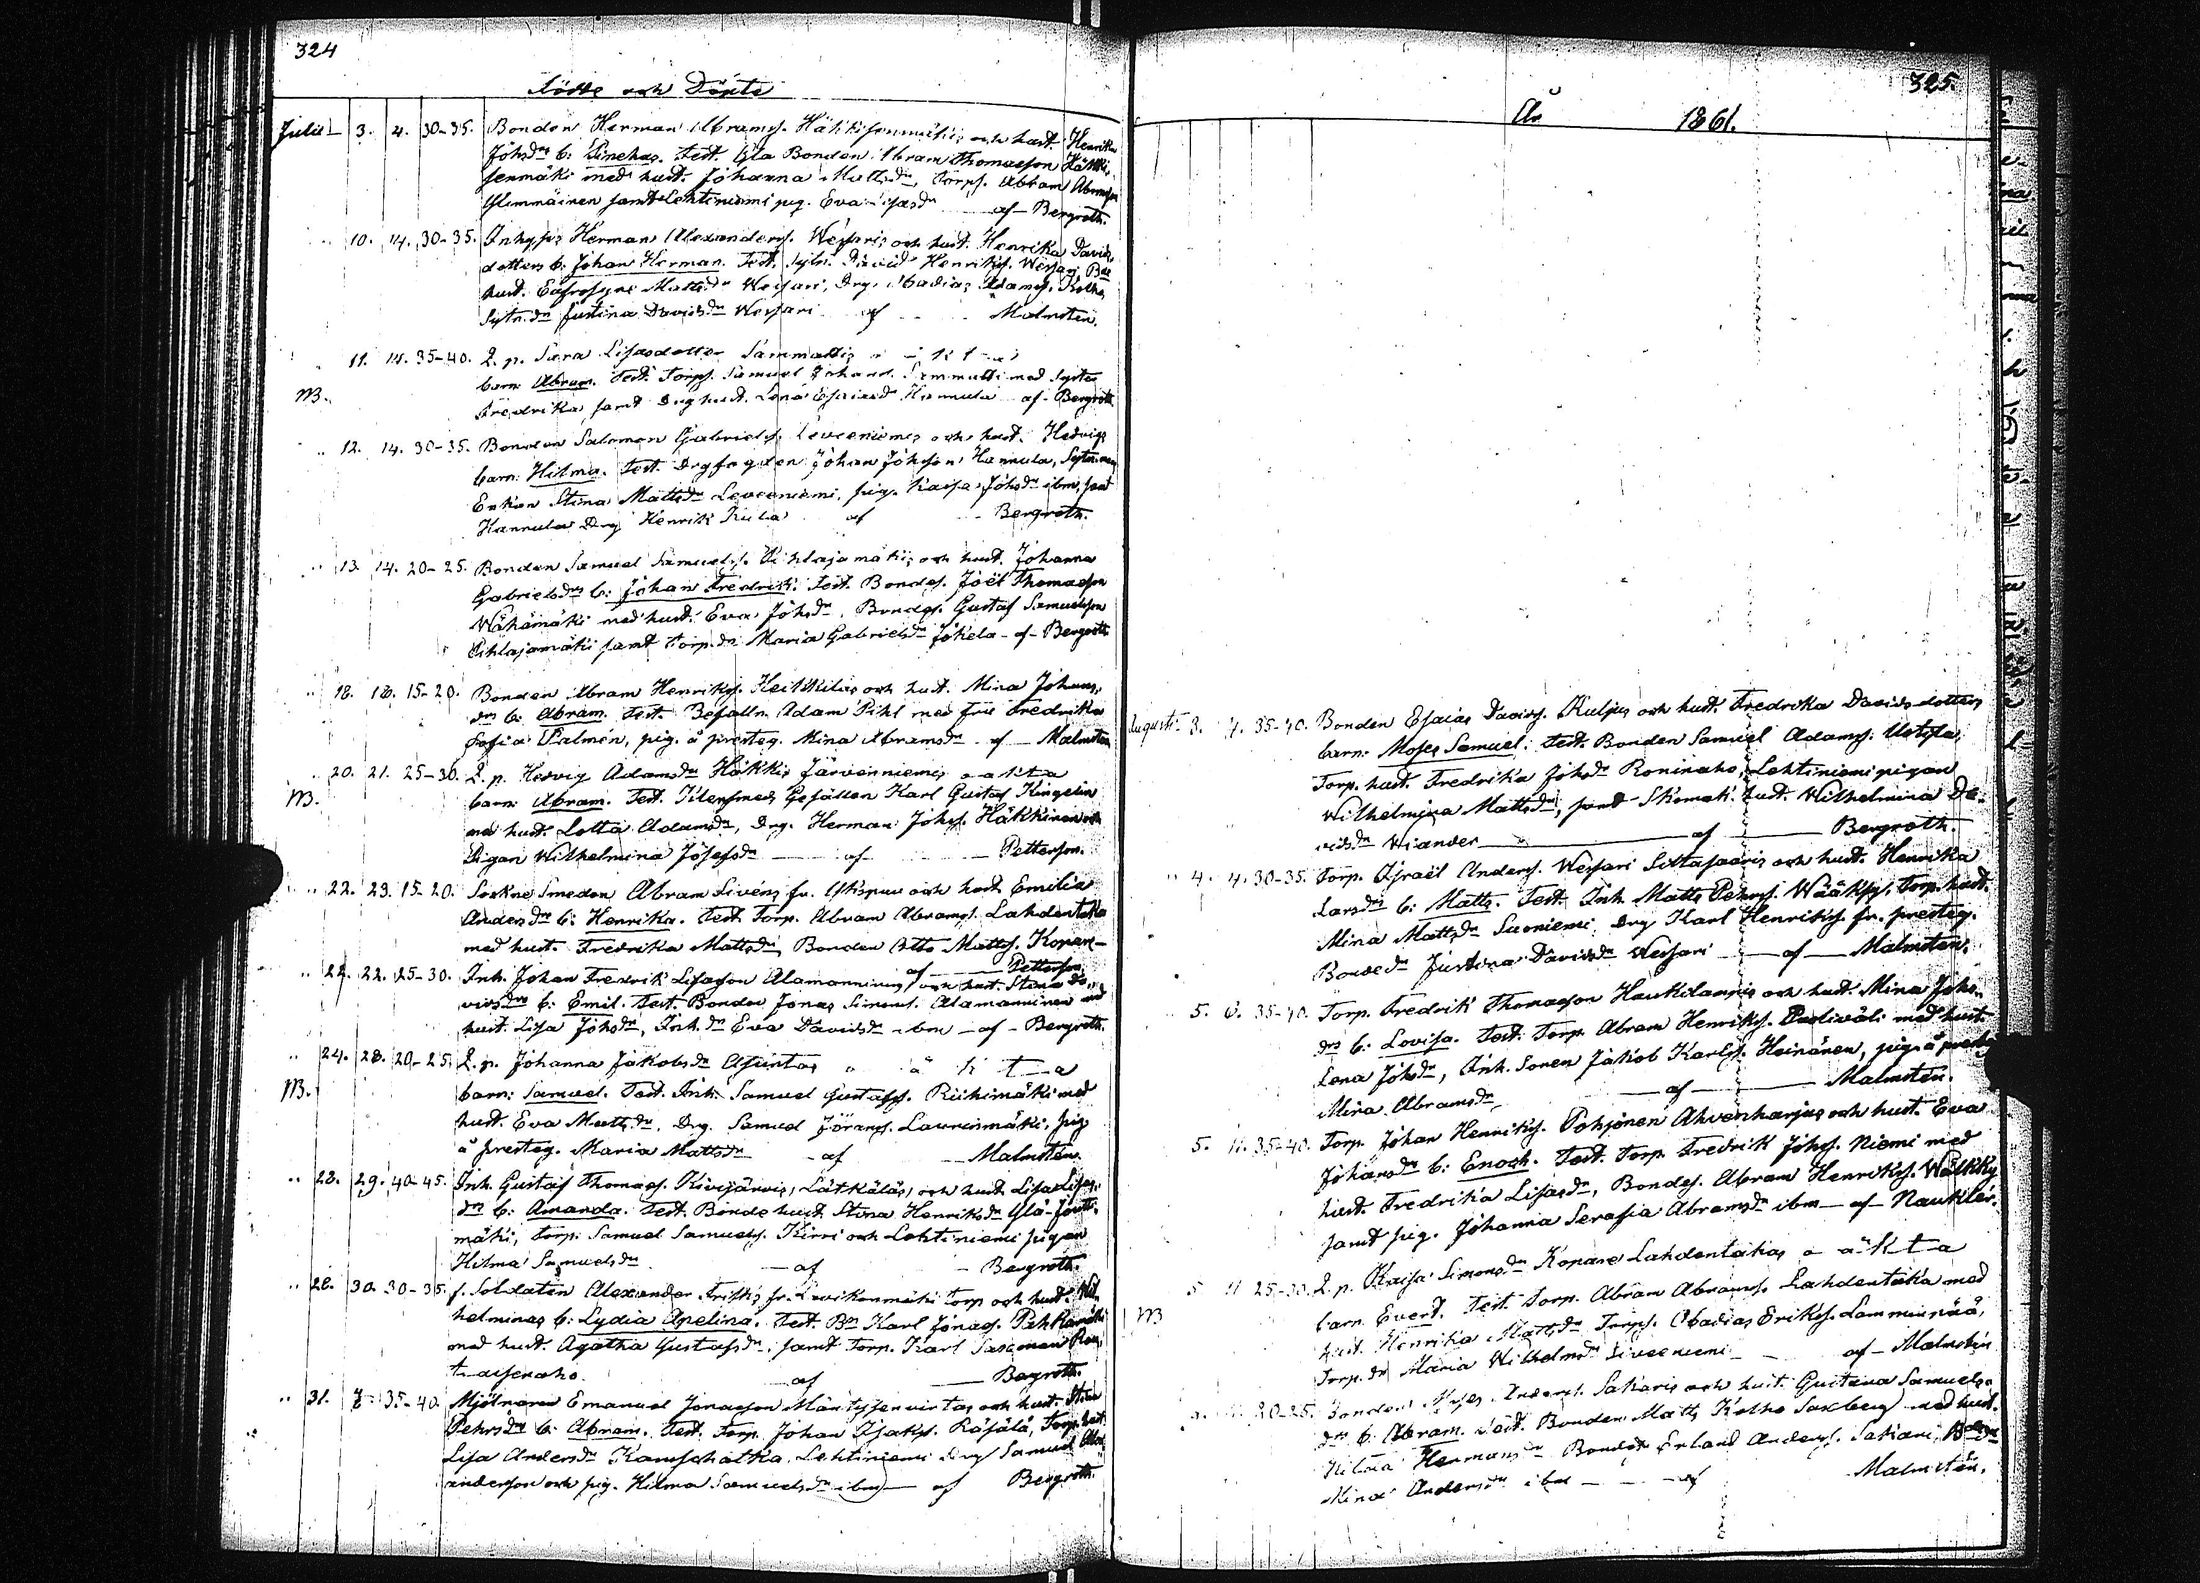 324
Födde och Döpte
Julii 3. 4. 30-35. Bonden Herman Abrams. Häkkisenmäkis och hust. Henrika
Johsdrs b: Sinehas. Test. Yla Bonden Abram Thomasson Häkki-
senmäki med hust. Johanna Mattsdr, Torps. Abram Abramson
Ylimmäinen samt Lehtiniemi pig. Eva dr af Bergroth.
10. 14. 30-35. Inhys Herman Alexanders. Wessaris och hust. Henrika Davids
dotters b: Johan Herman. Test. Sytn. David Henriks. Wessari, Bde
hust. Eufrosyne Mattsdr Wessari, Drg. Abadias Adams. Kotho,
Sytn. dr Justina Davidsdr Wessari af Malmstén.
11. 14. 35-40. L. p. Sara Lisasdotter Sammattis o ä k t a
barn: Abram. Test. Torps. Samuel Johans. Sammatti med Syster
NB. Fredrika samt Drg hust. Lena Esaiasd Hannula af Bergroth
12. 14. 30-35. Bonden Salomon Gabriels. Leveeniemis och hust. Hedvigs
barn: Hilma. Test. Drgfogden Johan Johsson Hannula,
Enkan Stina Mattsdr Leveeniemi, pig. Kaisa Johsdr ibm, samt
Hannula Drg Henrik Kula af Bergroth.
13. 14. 20-25. Bonden Samuel Samuels. Pihlajamäkis och hust. Johanna
Gabrielsdrs b: Johan Fredrik. Test. Bondes. Joël Thomasson
Wähämäki med hust. Eva Johsdr, Bondes. Gustaf Samuelsson
Pihlajamäki samt Torp. dr Maria Gabrielsdr Jokela af Bergroth
18. 18. 15-20. Bonden Abram Henriks. Heikkiläs och hust. Mina Johans-
drs b: Abram. Test. Befalln. Adam Pihl med fru Fredrika
Sofia Palmén, pig. å presteg. Mina Abramsdr af Malmstén
20. 21. 25-30. L. p. Hedvig Adamsdr Häkkis Järvenniemis o ä k t a
NB. barn: Abram. Test. Gesällen Karl Gustaf Kingelin
med hust. Lotta Adamsdr, Drg. Herman Johs. Häkkinen och
Pigan Wilhelmina Josefsdr af Petterson.
22. 23. 15-20. Sockne Smeden Abram Siréns fr. och hust Emilia
Andersdrs b: Henrika. Test. Torp. Abram Abrams. Lahdentaka
med hust. Fredrika Mattsdr, Bonden Otto Matts. Kopare-
af Petterson.
22. 22. 25-30. Inh. Johan Fredrik Lisason Alamanninens och hust. Stina Da-
vidsdrs b: Emil. Test. Bonden Jonas Simons. Alamanninen med
hust. Lisa Johsdr, Inh. dr Eva Davidsdr ibm af Bergroth.
24. 28. 20-25. L. p. Johanna Jakobsdr Asuntas o ä k t a
NB. barn: Samuel. Test. Inh. Samuel Gustafs. Riihimäki med
hust. Eva Mattsdr, Drg. Samuel Görans. Laurinmäki, pig
å presteg. Maria Mattsdr af Malmstén.
28. 29. 40-45. Inh. Gustaf Thomass. Kivijärvis, Lätkäläs, och hust Lisa Lisas-
drs b: Amanda. Test. Bonde hust. Stina Henriksdr Ylä-
mäki, Torp. Samuel Samuels. Kirri och Lehtiniemi pigan
Hilma Samuelsdr af Bergroth.
28. 30. 30-35. f. Soldaten Alexander Frisks fr. Levikonmäki torp och hust. Wil-
helminas b: Lydia Apelina. Test. Bn Karl Jonas.
med hust. Agatha Gustafsdr, samt Torp. Karl Saxman
af Bergroth.
31. 35-40. Mjölnaren Emanuel Jonasson Mäntysenvirtas och hust. Stina
Pehrsdrs b: Abram. Test. Torp. Johan Isaks. Räsälä, Torp. hust.
Lisa Andersdr Kamschatka, Lehtiniemi Drg Samuel Alex-
andersson och pig. Hilma Samuelsdr ibm af Bergroth.
År 1861.
325.
Augusti 3. 4. 35-40. Bonden Esaias Davids. Kuljus och hust. Fredrika Davidsdotters
barn: Moses Samuel. Test. Bonden Samuel Adams. Uotyla,
Torp. hust. Fredrika Johsdr Roninaho, Lehtiniemi pigan
Wilhelmina Mattsdr, samt Skomak. hust. Wilhelmina Da-
vidsdr Wiander af Bergroth.
4. 4. 30-35. Torp. Israël Anders. Wessari Siltasaaris och hust. Henrika
Larsdrs b: Matts. Test. Inh Matts Pehrs. Wääksy, Torp. hust.
Mina Mattsdr Suoniemi, Drg Karl Henriks. fr. presteg.
Bondedr Justina Davidsdr Wessari af Malmstén.
5. 6. 35-40. Torp. Fredrik Thomasson Haukilannis och hust. Mina Johs-
drs b: Lovisa. Test. Torp. Abram Henriks. Puoliväli med hust.
Lena Johsdr, Inh. Sonen Jakob Karls. Heinänen, pig. å presteg
Mina Abramsdr af Malmstén.
5. 11. 35-40. Torp. Johan Henriks. Pohjonen Ahvenharjus och hust. Eva
Johansdr b: Enoch. Test. Torp. Fredrik Johs. Niemi med
hust. Fredrika Lisasdr, Bondes. Abram Henriks. Wälkky
samt pig. Johanna Serafia Abramsdr ibm af Nauklér.
5. 11. 25-30. L. p. Kaisa Simonsdr Kopare Lahdentakas o ä k t a
NB barn Everd. Test. Torp. Abram Abrams. Lahdentaka med
hust. Henrika Mattsdr, Torps. Abadias Eriks. Lamminpää,
Torp. dr Maria Wilhelmsdr Liveeniemi af Malmstén
30-35. Bonden Anders. Sakaris och hust. Gustava Samuels-
drs b: Abram. Test. Bonden Matts Kotho Saxberg med hust.
Hilma Hermansdr, Bondes. Erland Anders. Sakari,
Mina Andersdr ibm af Malmstén.